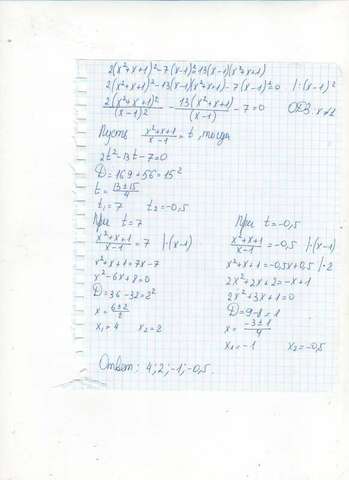 2(x²+x+1)²-7(x-1)²=13(x-1)(x²+x+1)
2(x²+x+1)²-13(x-1)(x²+x+1)-7(x-1)²=0 |:(x-1)²
2(x²+x+1)²/(x-1)² - 13(x²+x+1)/(x-1) - 7=0 ОДЗ: x≠1
Пусть (x²+x+1)/(x-1)=t, тогда
2t²-13t-7=0
D=169+56=15²
t=(13±15)/4
t₁=7 t₂=-0,5
При t=7
(x²+x+1)/(x-1)=7 |·(x-1)
x²+x+1=7x-7
x²-6x+8=0
D=36-32=2²
x=(6±2)/2
x₁=4 x₂=2
При t=-0,5
(x²+x+1)/(x-1)=-0,5 |·(x-1)
x²+x+1=-0,5x+0,5 |·2
2x²+2x+2=-x+1
2x²+3x+1=0
D=9-8=1
x=(-3±1)/4
x₁=-1 x₂=-0,5
Ответ: 4; 2; -1; -0,5.